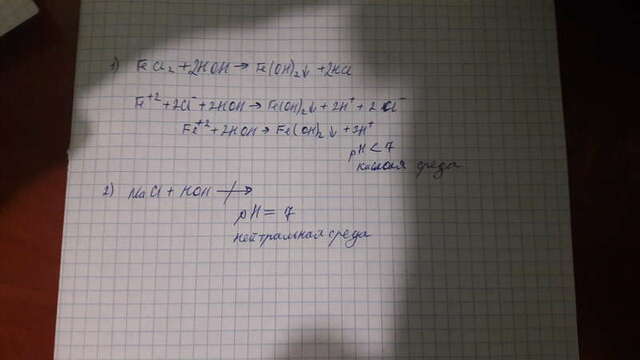 1) FeCl₂ + 2HOH → Fe(OH)₂↓ + 2HCl
Fe⁺² + 2Cl⁻ + 2HOH → Fe(OH)₂↓ + 2H⁺ + 2Cl⁻
Fe⁺² + 2HOH → Fe(OH)₂↓ + 2H⁺
pH < 7
кислая среда
2) NaCl + HOH ↛
pH = 7
нейтральная среда